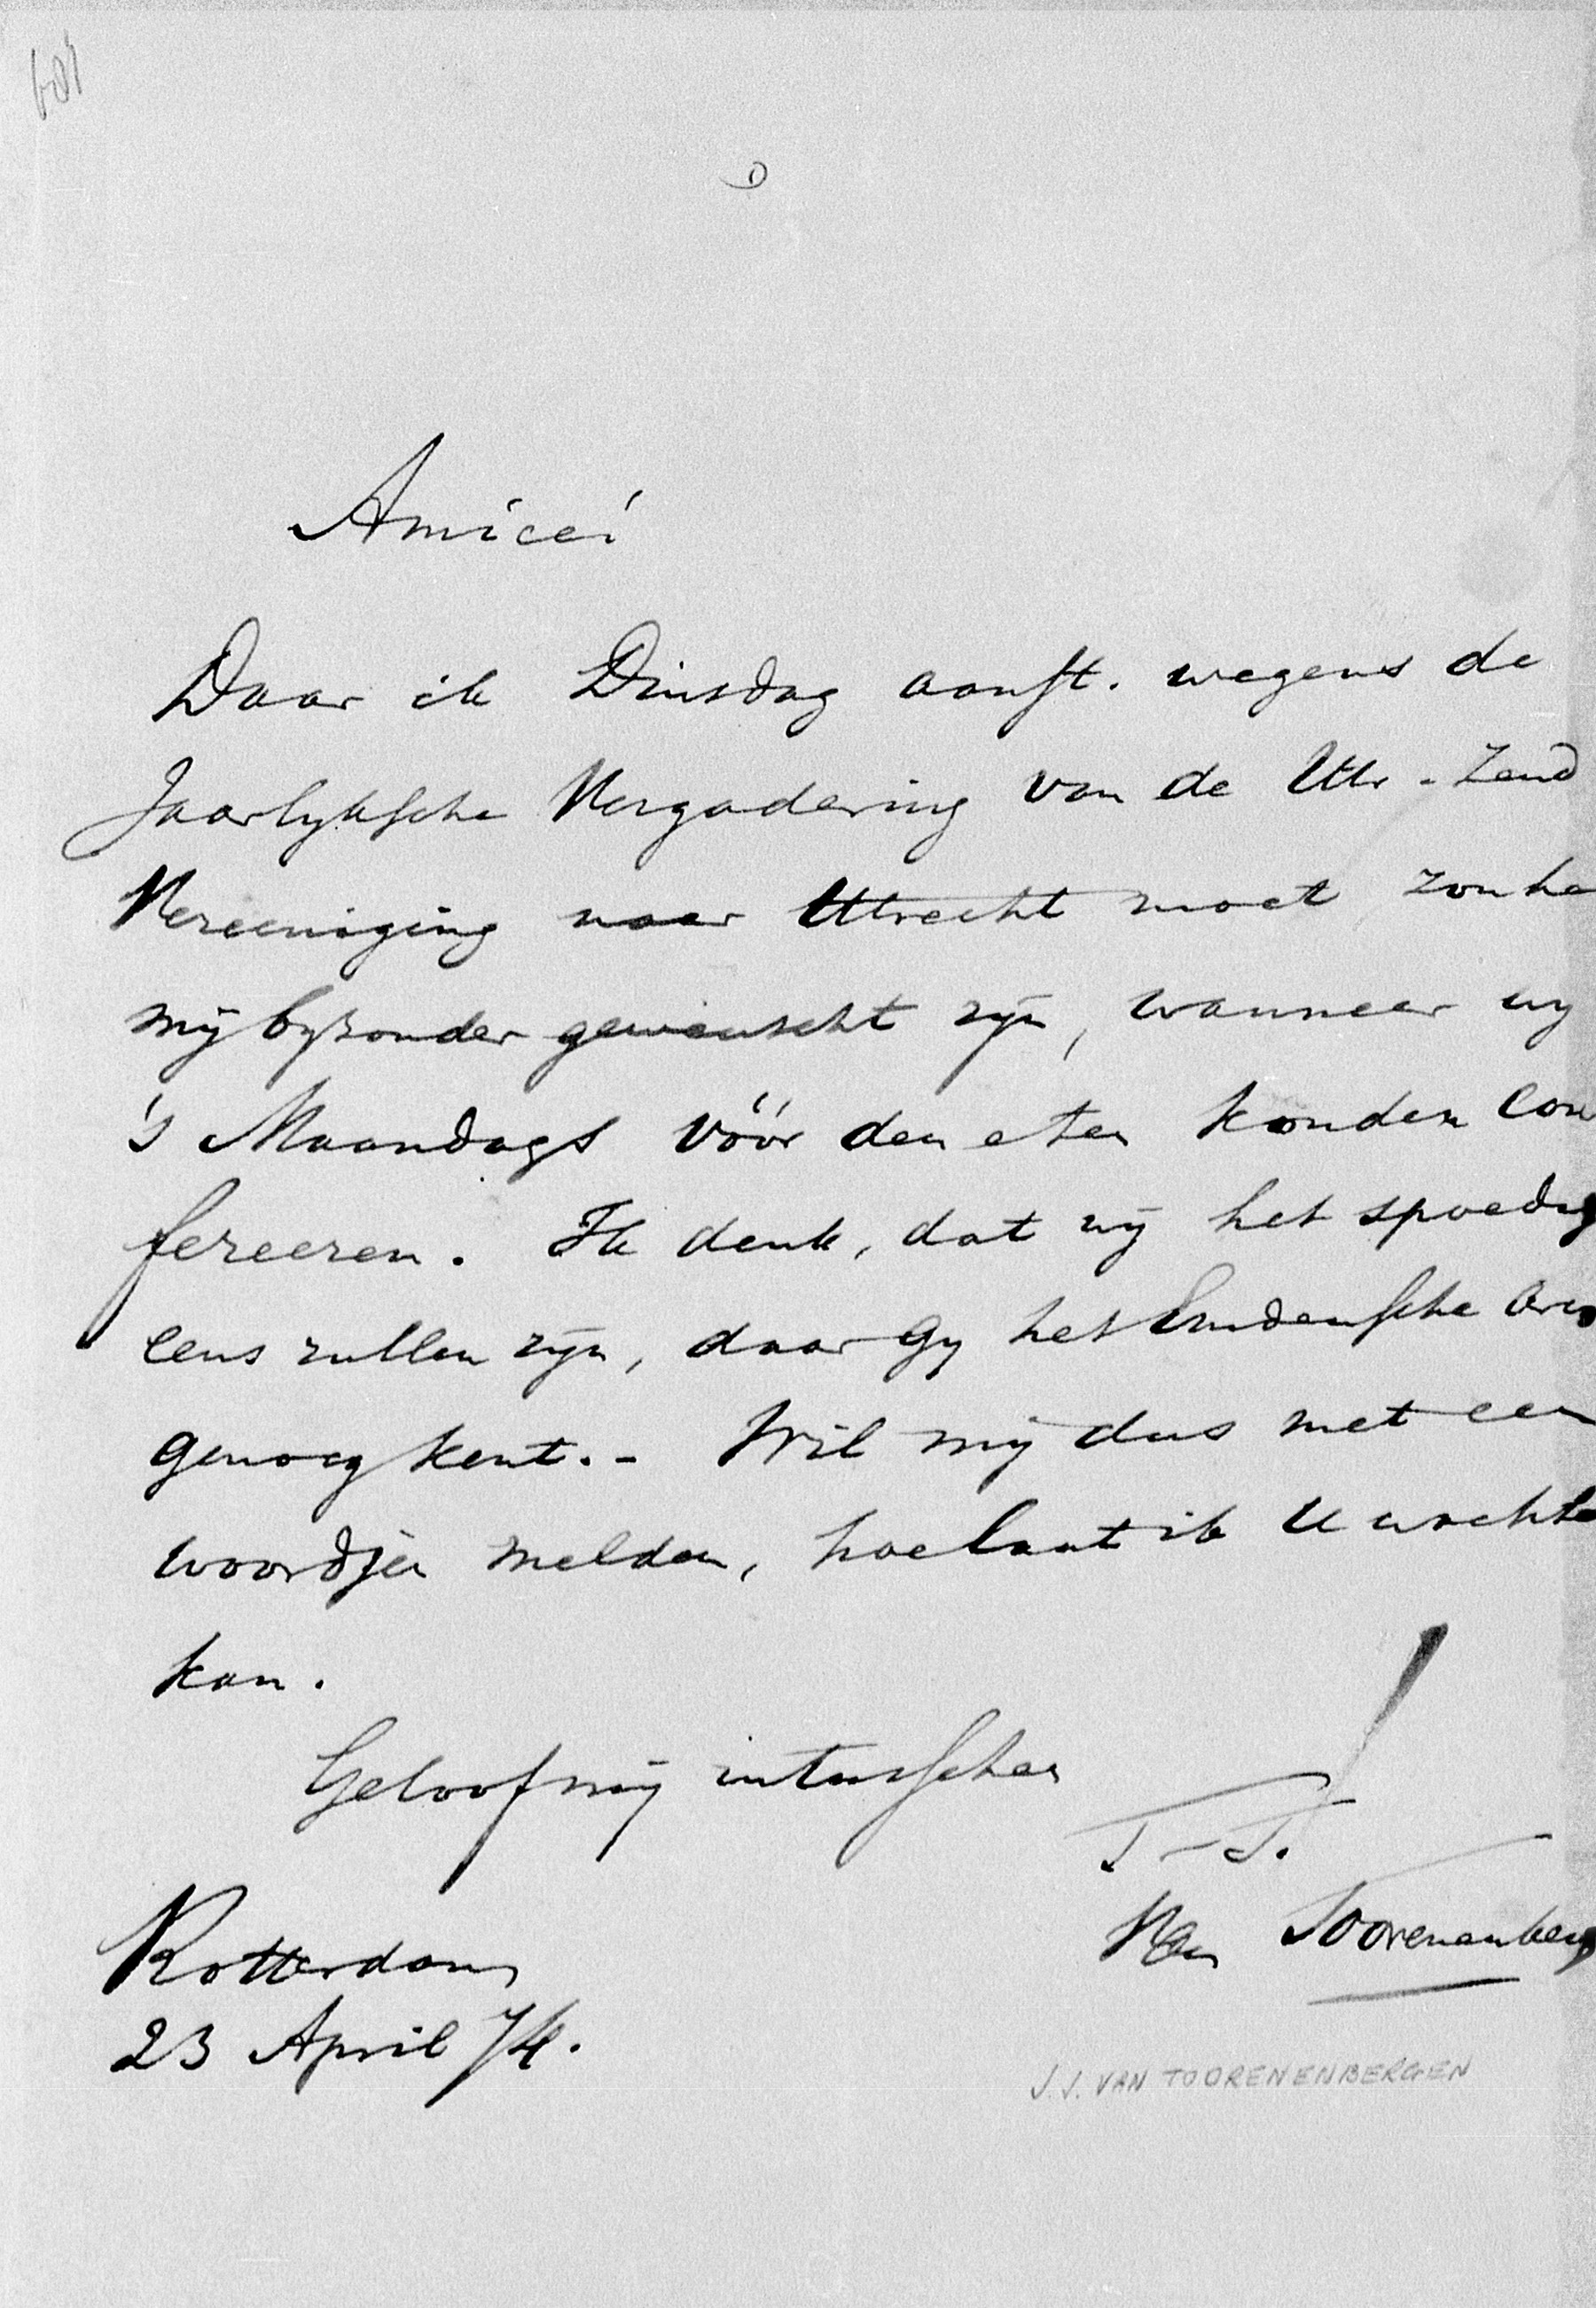 Amice!
Daar ik Dinsdag aanst. wegens de
Jaarlyksche Vergadering van de Utr. Zend
Vereeniging naar Utrecht moet zou he
mij byzonder gewenscht zijn, wanneer wy
's Maandags vóór den eten konden con
fereeren. Ik denk, dat wij het spoedig
eens zullen zijn, daar Gy het Emdensche
genoeg kent. - Wil mij dus met een
woordjen melden, hoe laat ik U wachte
kan.
Geloof mij intusschen
T. T.
Van Toorenenberg
Rotterdam
23 April 74.
J. J. VAN TOORENENBERGEN